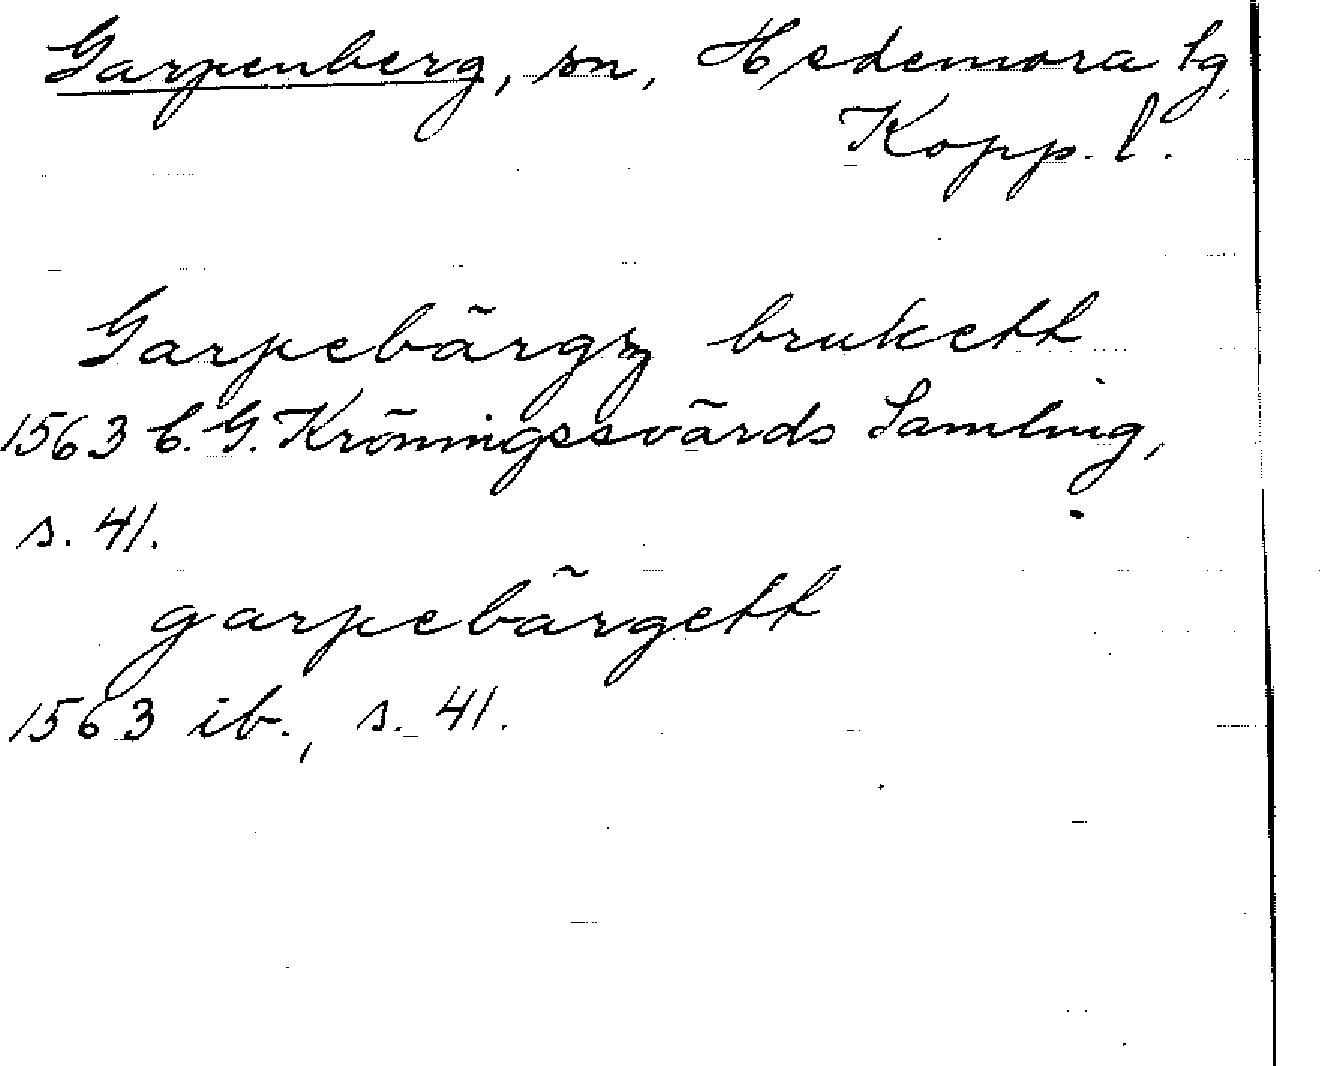 Garpenberg, sn, Hedemora tg,
Kopp. l.
Garpebärgz brukett
1563 C. G. Kröningssvärds Samling,
s. 41.
garpebärgett
1563 ib., s. 41.